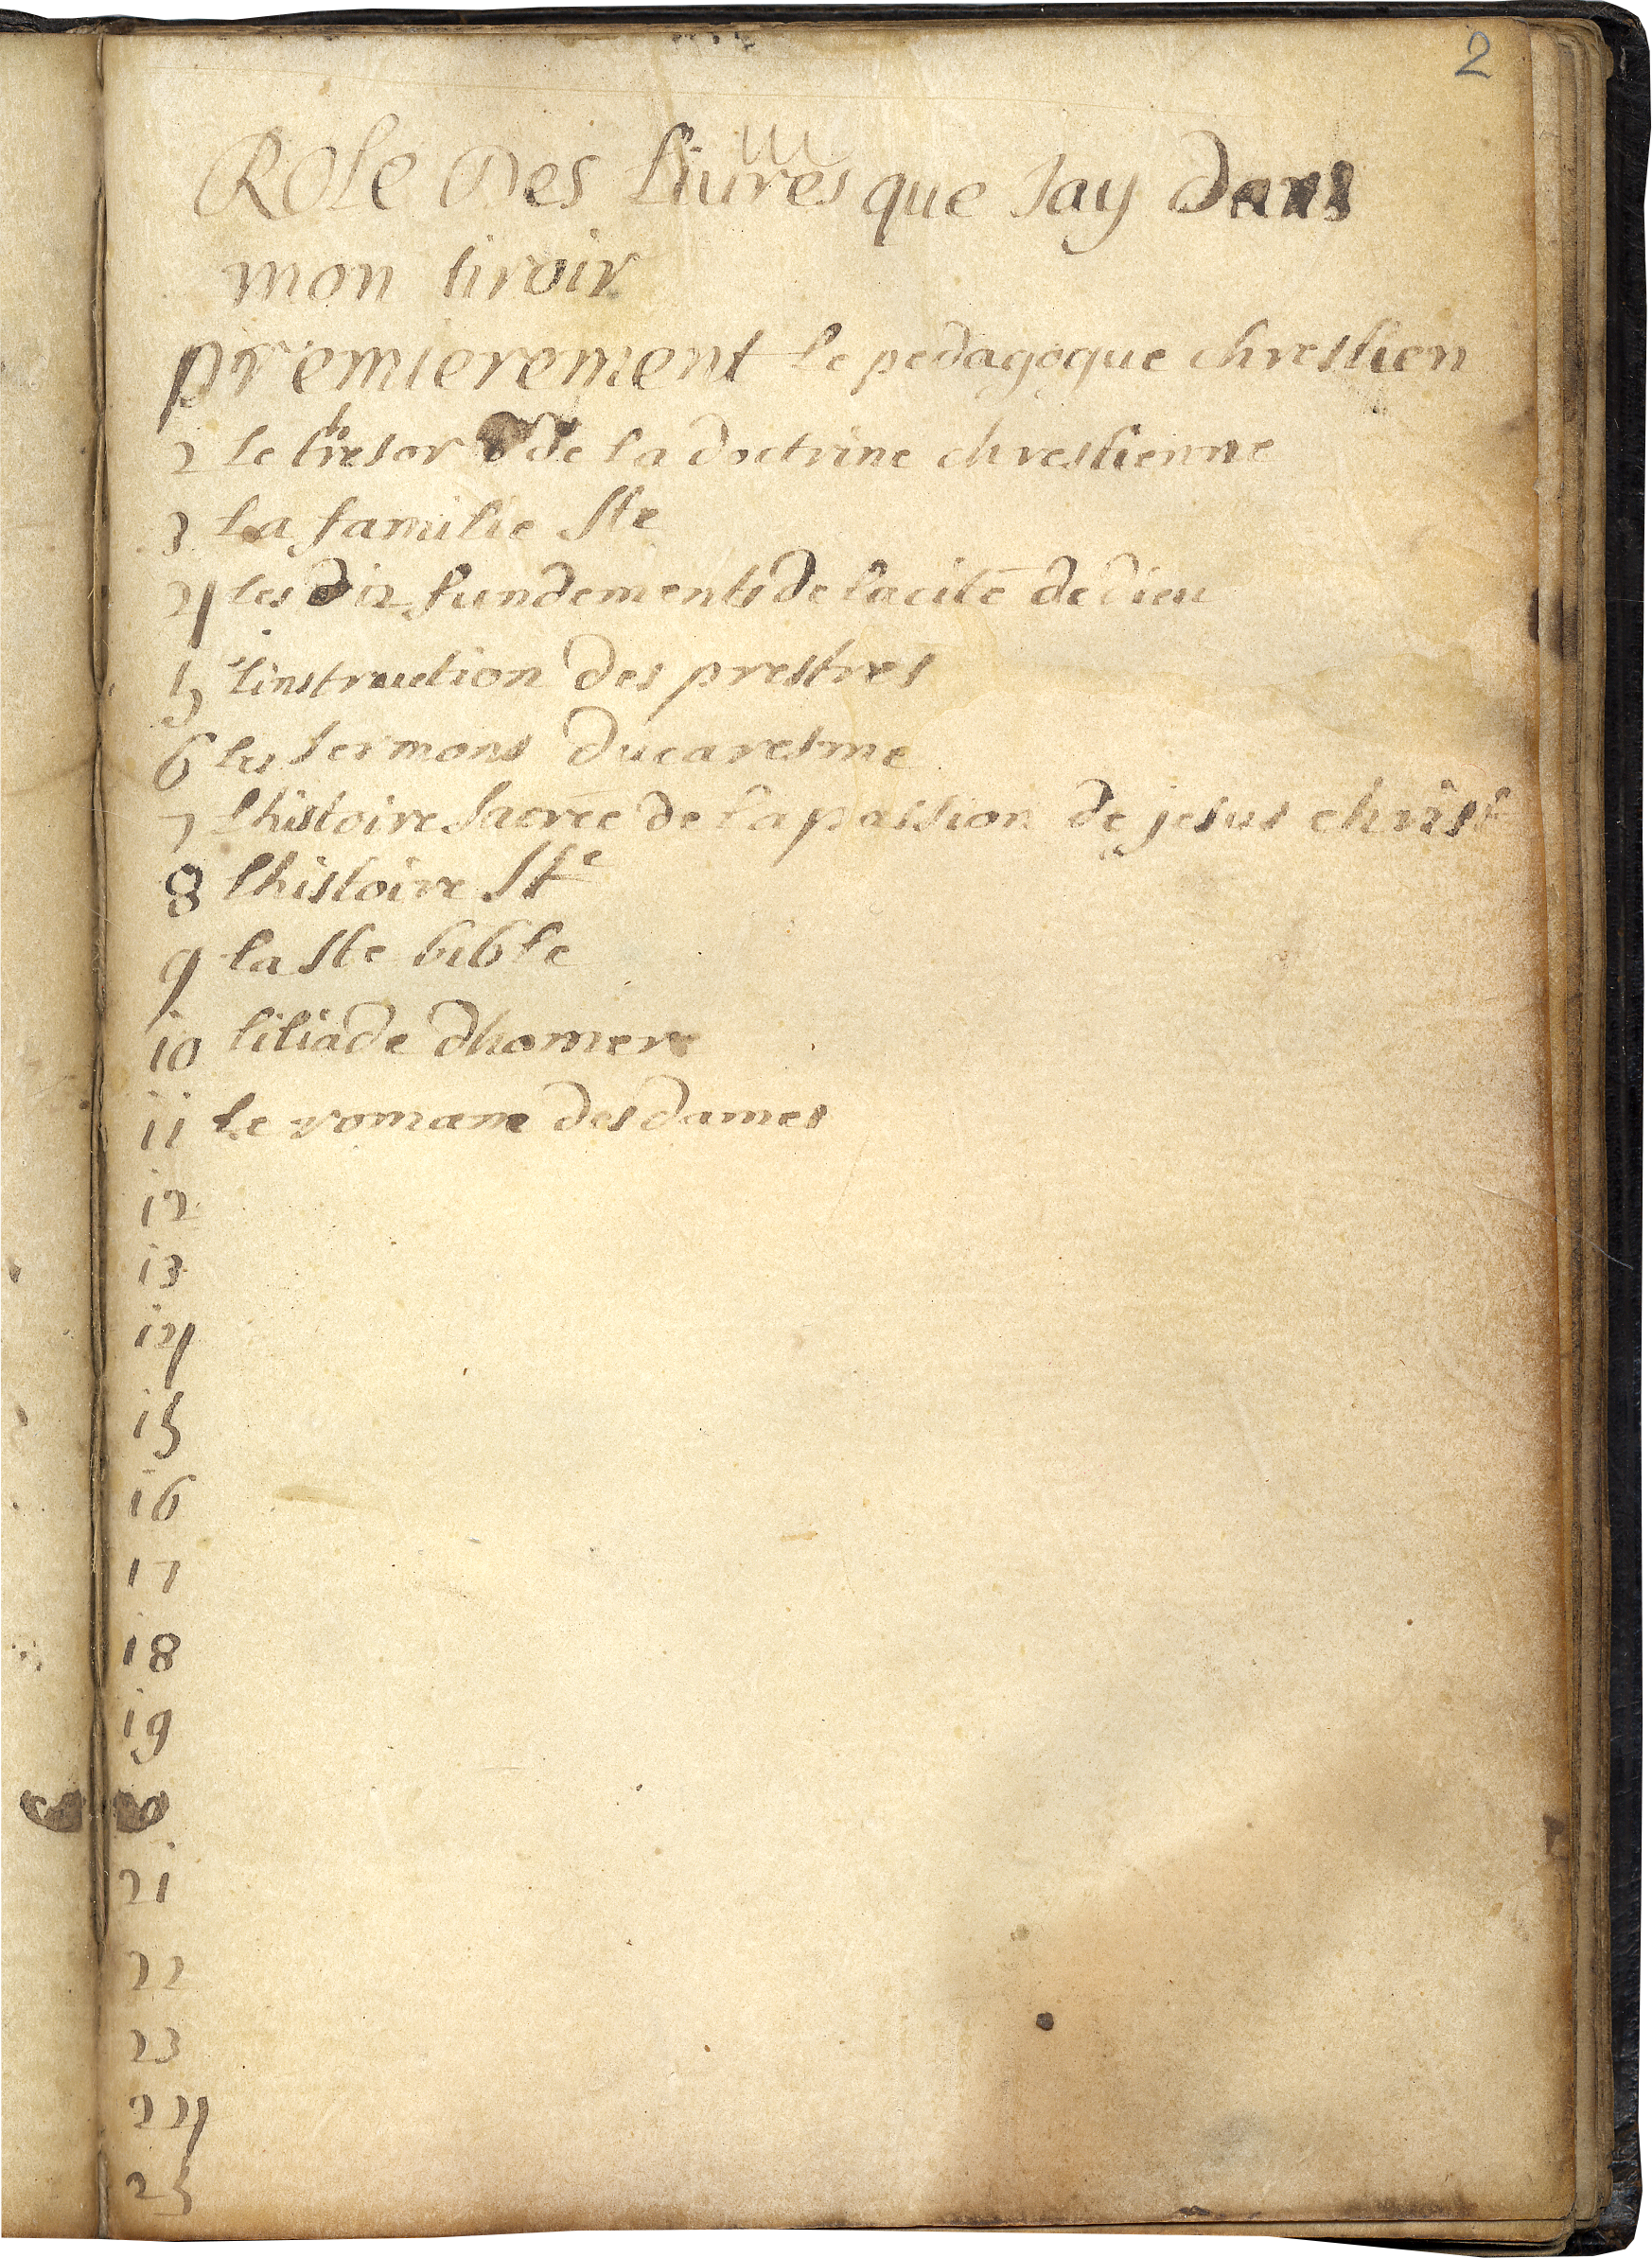 2
Role Des liures que Jay Dans
mon tiroir
premierement le pedagogue chrestien
2 le tresor de la doctrine chrestienne
3 la famille Ste
4 les dix fundements de la cité de dieu
5 l'instruction des prestres
6 les sermons du caresme
7 lhistoire sacrée de la passion de jesus christ
8 lhistoire Ste
9 la Ste bible
10 liliade dhomere
11 le romane des dames
12
13
14
15
16
17
18
19
21
22
23
24
25